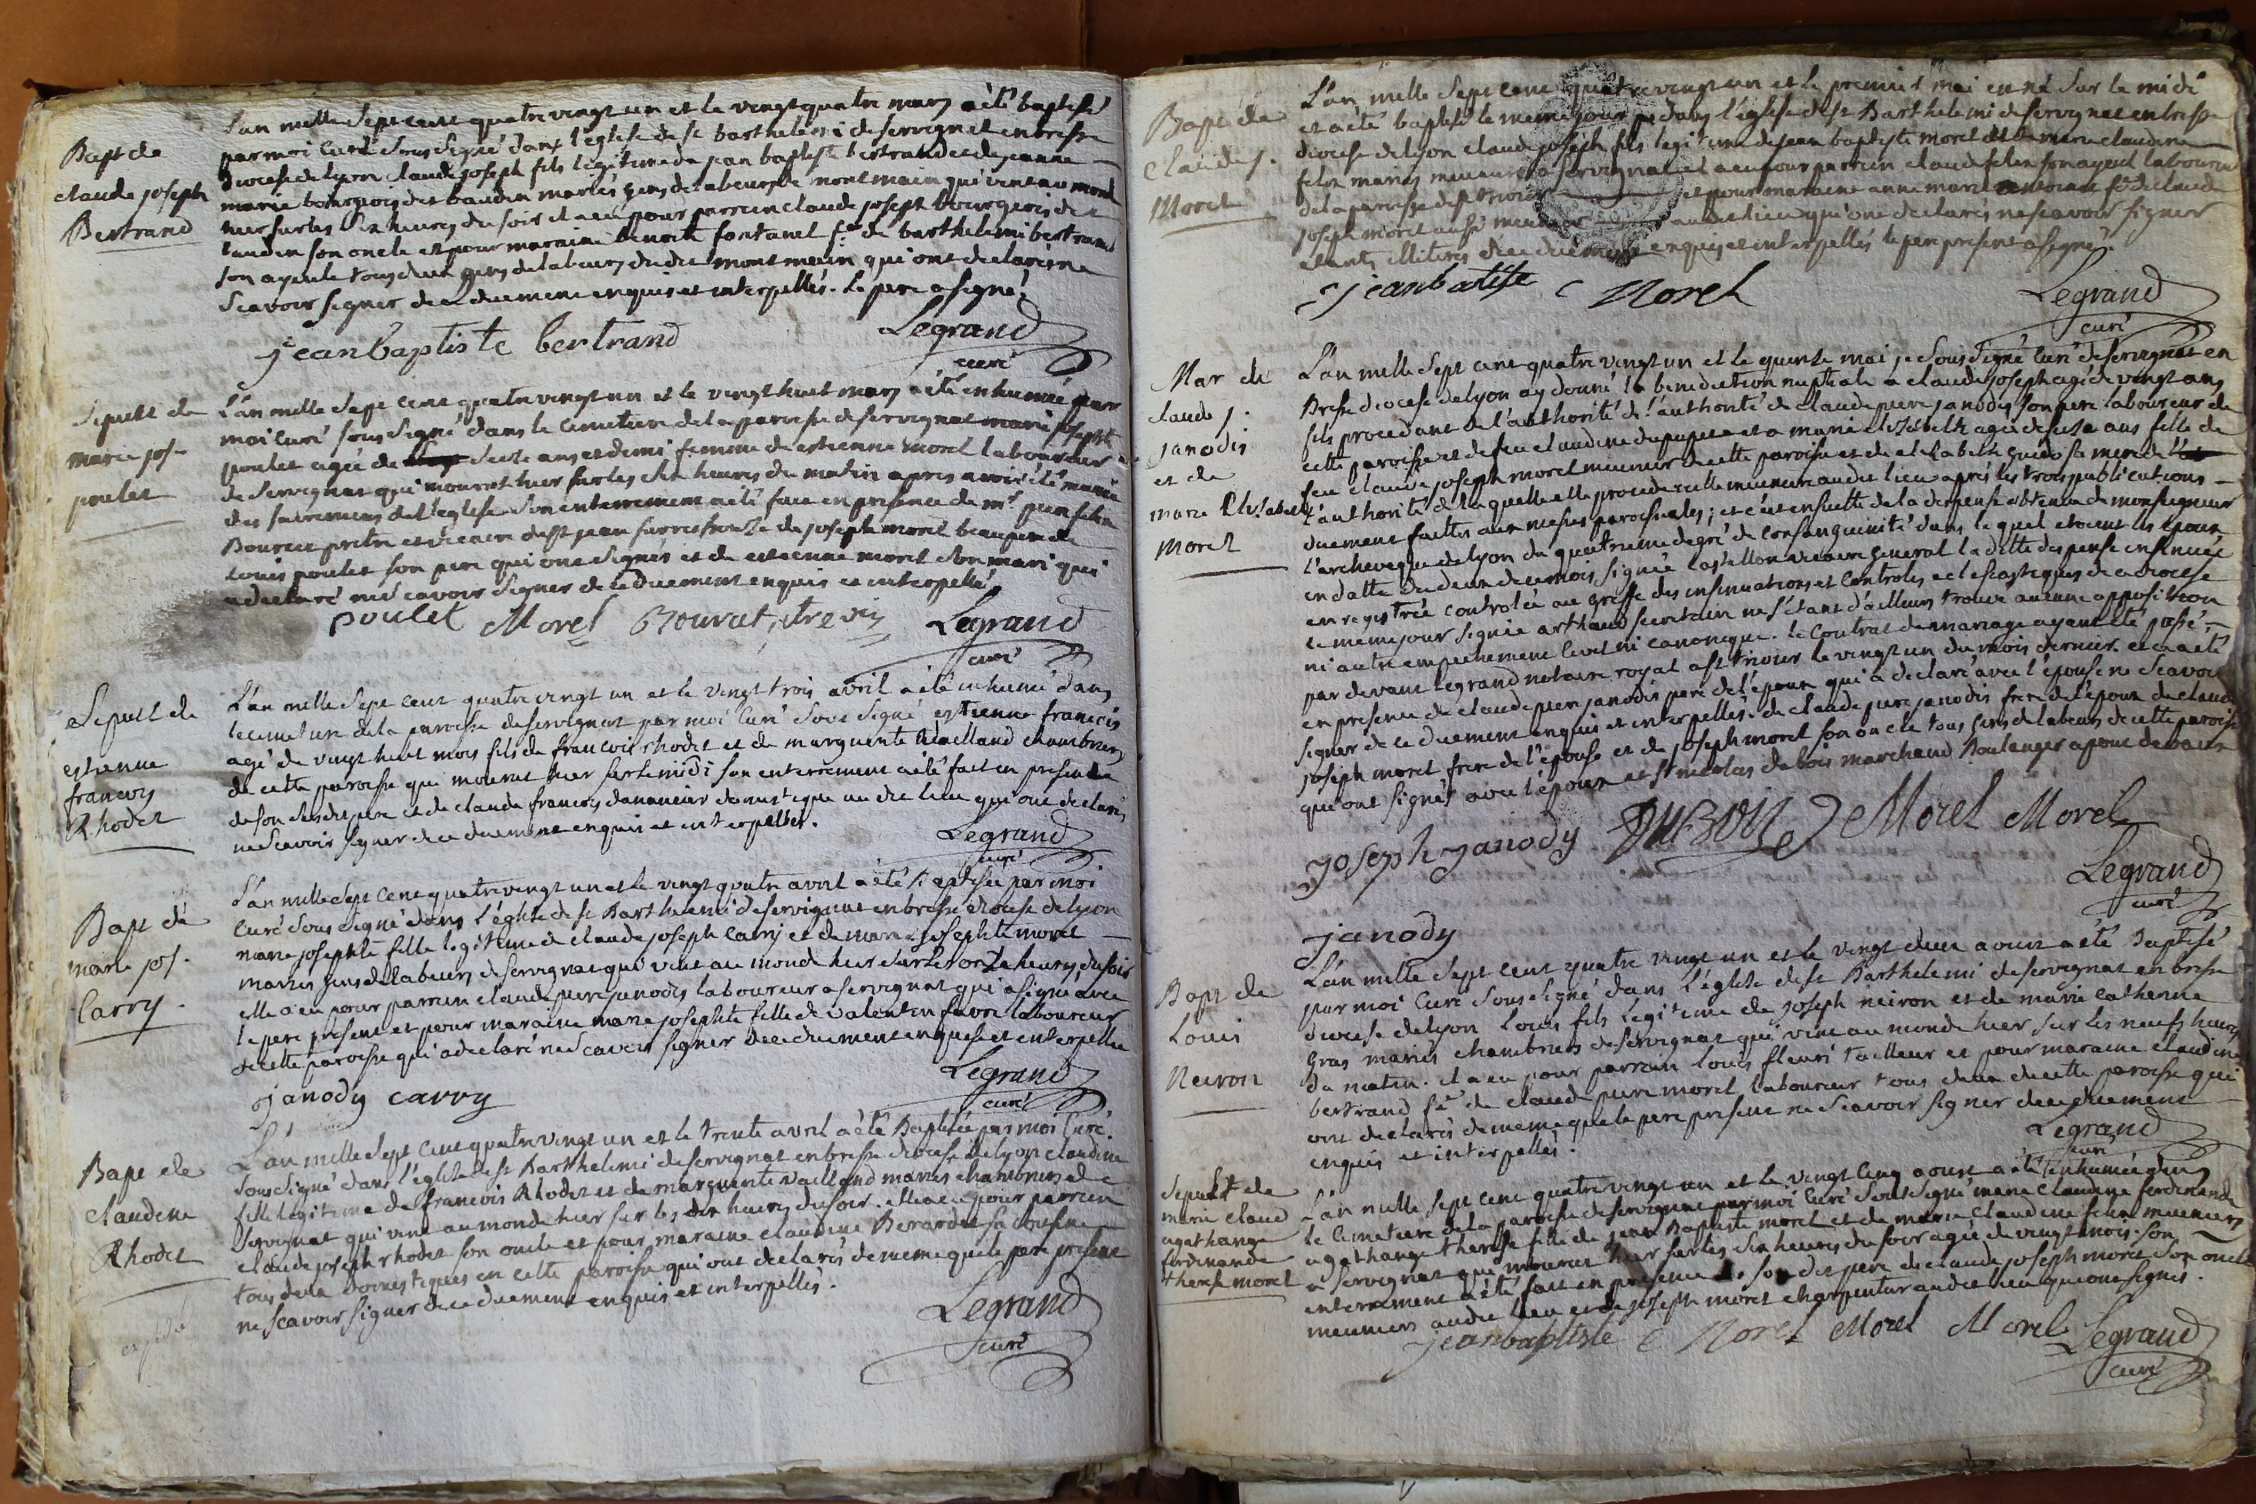 Bapt de
claude joseph
Bertrand
L'an mille sept cent quatre vingt un et le vingt quatre mars a été baptisé
par moi curé sous signé dans l'église de st barthelemi de servignat en bresse
diocese de lyon claude joseph fils légitime de jean baptiste bertrand et de jeanne
marie bourgeois dit baudin mariés gens de labeurs de montmain qui vint au monde
hier sur les dix heures du soir il a eu pour parrein claude joseph bourgeois dit
baudin son oncle et pour maraine benoite fontanel fe de barthelemi bertrand
son ayeule tous deux gens de labeurs du dit montmain qui ont declarés ne
scavoir signer de ce duement enquis et interpellés. le pere a signé.
jean baptiste bertrand Legrand
curé
Sepult de
marie jos.
poulet
L'an mille sept cent quatre vingt un et le vingt huit mars a été enhumée par
moi curé sous signé dans le cimetiere de la paroisse de servignat marie josephte
poulet agée de seize ans et demi femme de estienne morel laboureur
de servignat qui mourut hier sur les six heures du matin apres avoir été munie
des sacremens de l'église. son enterrement a été fait en presence de mr
Bouvret pretre et vicaire de st jean sur ressouze de joseph morel beaupere de
louis poulet son pere qui ont signés et de estienne morel son mari qui
a declaré ne scavoir signer de ce duement enquis et interpellé
poulet Morel Bouvret, ptre vic Legrand
curé
Sepult de
estienne
francois
Rhodet
L'an mille sept cent quatre vingt un et le vingt trois avril a été inhumé dans
le cimetiere de la paroisse de servignat par moi curé sous signé estienne francois
agé de vingt huit mois fils de francois rhodet et de marguerite vailland chambriers
de cette paroisse qui mourut hier sur le midi son enterrement a été fait en presence
de son dit pere et de claude francois danancier domestique au dit lieu qui ont declarés
ne scavoir signer de ce duement enquis et interpellés.
Legrand
curé
Bapt de
marie jos.
Carry
L'an mille sept cent quatre vingt un et le vingt quatre avril a été baptisée par moi
curé sous signé dans l'église de st Barthelemi de servignat en bresse diocese de lyon
marie josephte fille legitime de claude joseph carry et de marie josephte morel
mariés gens de labeurs de servignat qui vint au monde hier sur les onze heures du soir
elle a eu pour parrein claude pierre janodis laboureur a servignat qui a signé avec
le pere présent et pour maraine marie josephte fille de valentin favre laboureur
de cette paroisse qui a declaré ne scavoir signer de ce duement enquise et interpellée
janody carry Legrand
curé
Bapt de
claudine
Rhodet
L'an mille sept cent quatre vingt un et le trente avril a été Baptisée par moi curé
sous signé dans l'église de st Barthelemi de servignat en bresse diocese de lyon claudine
fille legitime de francois Rhodet et de marguerite vailland mariés chambriers de
servignat qui vint au monde hier sur les dix heures du soir. elle a eu pour parrein
claude joseph rhodet son oncle et pour maraine claudine Berardet sa cousine
tous deux domestiques en cette paroisse qui ont declarés de meme que le pere présent
ne scavoir signer de ce duement enquis et interpellés.
Legrand
curé
Bapt de
Claude j.
Morel
L'an mille sept cent quatre vingt un et le premier mai est né sur le midi
et a été baptisé le meme jour dans l'église de st Barthelemi de servignat en bresse
diocese de lyon claude joseph fils legitime de jean baptiste morel et de marie claudine
felix mariés meuniers a servignat il a eu pour parrein claude felix son ayeul laboureur
de la paroisse de st trivier et pour maraine anne marie fe de claude
joseph morel aussi meunier au dit lieu qui ont declarés ne scavoir signer
etants illitérés de ce duement enquis et interpellés le pere présent a signé.
jean batiste C Morel Legrand
curé
Mar de
claude j.
janodis
et de
marie Elizabeth
Morel
L'an mille sept cent quatre vingt un et le quinze mai je sous signé curé de servignat en
Bresse diocese de lyon ay donné la bénédiction nuptiale a claude joseph agé de vingt ans
fils procedant de l'authorité de l'authorité de claude pierre janodis son pere laboureur de
cette paroisse et de feu claudine dupupet et a marie elizabeth agée de seize ans fille de
feu claude joseph morel meunier de cette paroisse et de elizabeth guido sa mere de
l'authorité de laquelle elle procede icelle meuniere au dit lieu après les trois publications
duement faittes aux messes paroissiales; et c'est ensuitte de la dispense obtenue de monseigneur
l'archeveque de lyon du quatrieme degré de consanguinité dans le quel etoient les epoux
en datte du deux de ce mois signée lastellon vicaire general la ditte dispense insinuée
enregistrée controlée au greffe des insinuations et controles eclesiastiques de ce diocese
le meme jour signée arthaud secretaire ne s'étant d'ailleurs trouvé aucune opposition
ni autre empechement civil ni canonique. le contrat de mariage ayant été passé
par devant legrand notaire royal a st trivier le vingt un du mois dernier. et ca a été
en presence de claude pierre janodis pere de l'époux qui a declaré avec l'épouse ne scavoir
signer de ce duement enquis et interpellés. de claude pierre janodis frere de l'époux de claude
joseph morel frere de l'épouse et de joseph morel son oncle tous gens de labeurs de cette paroisse
qui ont signés avec l'époux et sr nicolas dubois marchand Boulanger a pont de vaux
joseph janody DUBOIS Morel Morel
Legrand
curé
janody
Bapt de
Louis
Neiron
L'an mille sept cent quatre vingt un et le vingt deux aoust a été Baptisé
par moi curé sous signé dans l'église de st Barthelemi de servignat en bresse
diocese de lyon Louis fils légitime de joseph neiron et de marie catherine
Gras mariés chambriers de servignat qui vint au monde hier sur les neufs heures
du matin. il a eu pour parrein louis fleuri tailleur et pour maraine claudine
bertrand fe de claude pierre morel laboureur tous deux de cette paroisse qui
ont declarés de meme que le pere présent ne scavoir signer de ce duement
enquis et interpellés. Legrand
curé
Sepult de
marie claud
agathange
ferdinande
therese morel
L'an mille sept cent quatre vingt un et le vingt cinq aoust a été inhumée dans
le cimetiere de la paroisse de servignat par moi curé sous signé marie claudine ferdinande
agathange therese fille de jean Baptiste morel et de marie claudine felix meuniers
a servignat qui mourut hier sur les six heures du soir agée de vingt mois. son
enterrement a été fait en présence de son dit pere de claude joseph morel son oncle
meuniers au dit lieu et de joseph morel charpentier au dit lieu qui ont signés.
jean baptiste C Morel Morel Morel Legrand
curé